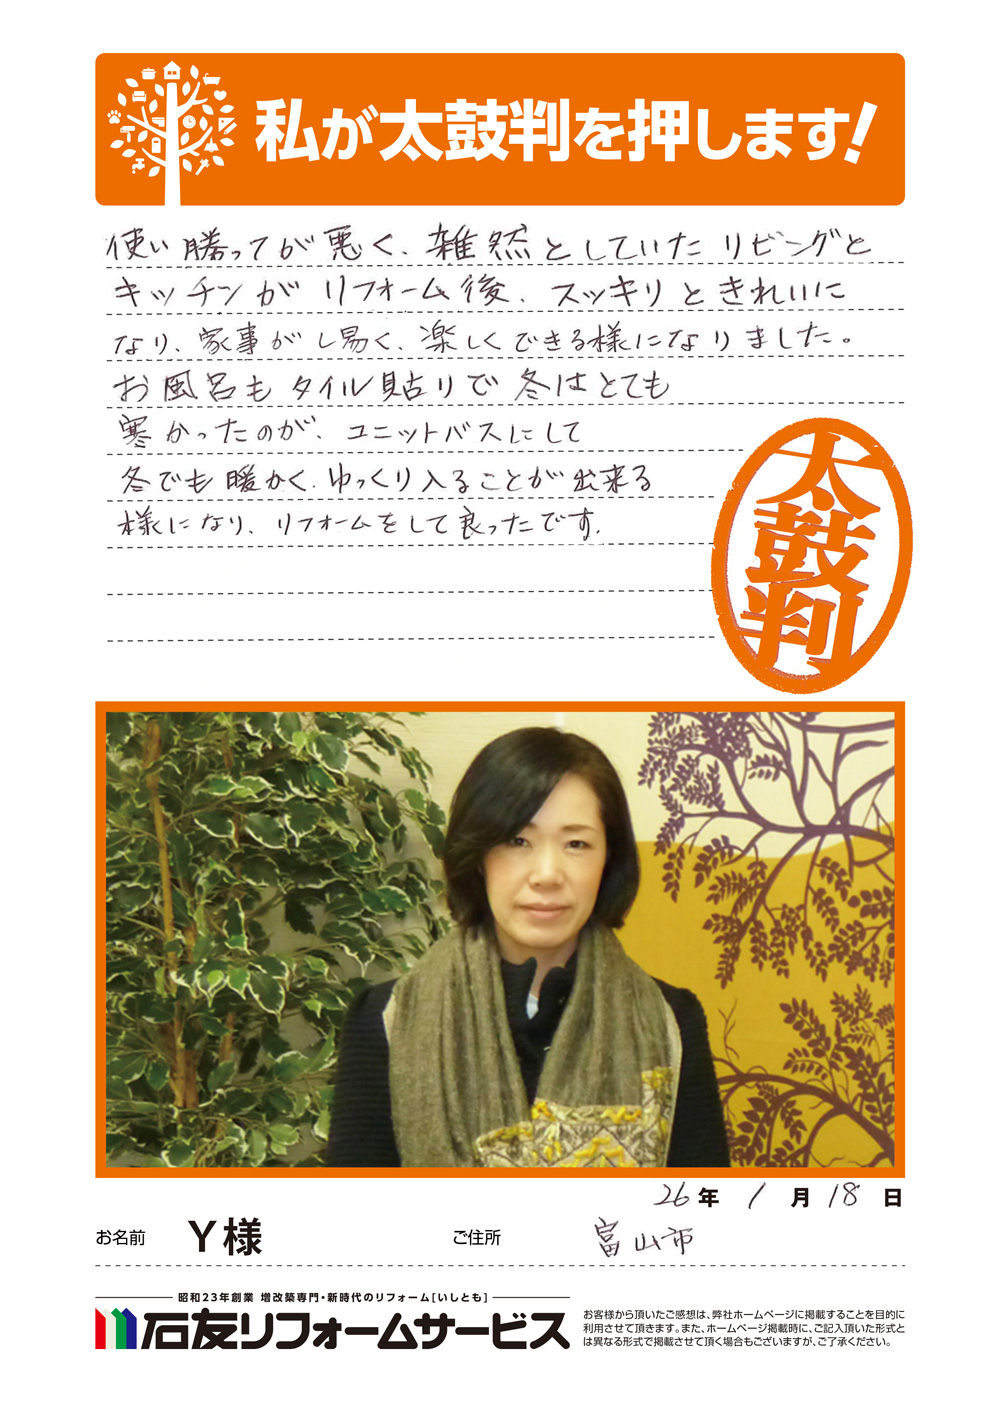 私が太鼓判を押します!
使い勝ってが悪く、雑然としていたリビングと
キッチンがリフォーム後、スッキリときれいに
なり、家事がし易く、楽しくできる様になりました。
お風呂もタイル貼りで冬はとても
寒かったのが、ユニットバスにして
冬でも暖かく、ゆっくり入ることが出来る
様になり、リフォームをして良ったです。
太鼓判
26年 1月18日
お名前 Y様 ご住所 富山市
昭和23年創業 増改築専門・新時代のリフォーム[いしとも]
石友リフォームサービス
お客様から頂いたご感想は、弊社ホームページに掲載することを目的に
利用させて頂きます。また、ホームページ掲載時に、ご記入頂いた形式と
は異なる形式で掲載させて頂く場合もございますが、ご了承ください。